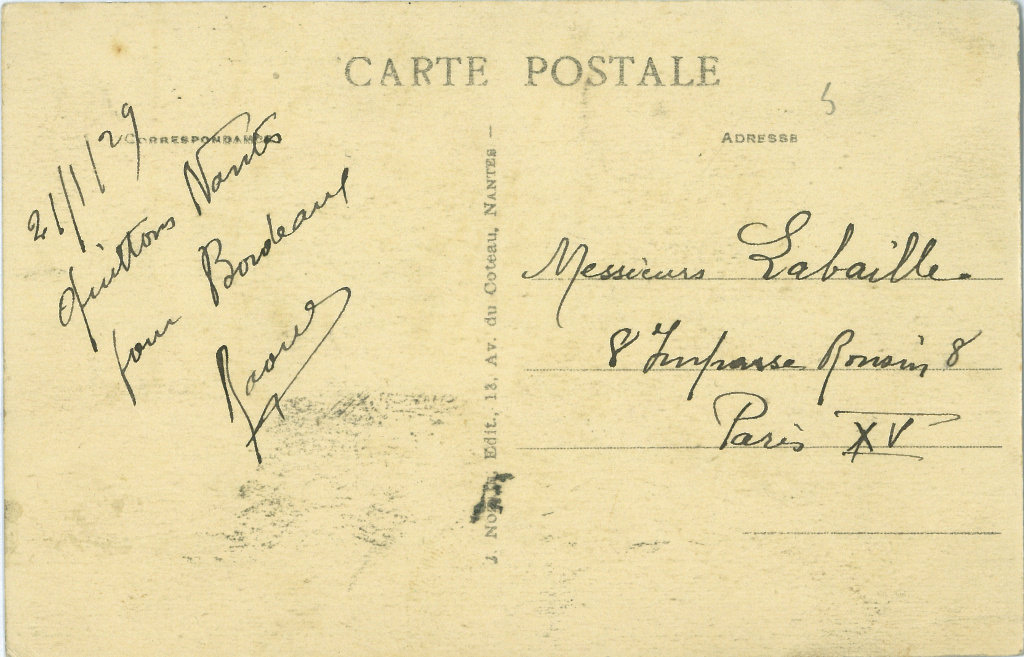 CARTE POSTALE
CORRESPONDANCE
ADRESSE
21/1/29
Quittons Nantes
pour Bordeaux
Raoul
J. Edit., 13, Av. du Coteau, NANTES –
Messieurs Labaille.
8 Impasse Ronsin 8
Paris XV
5